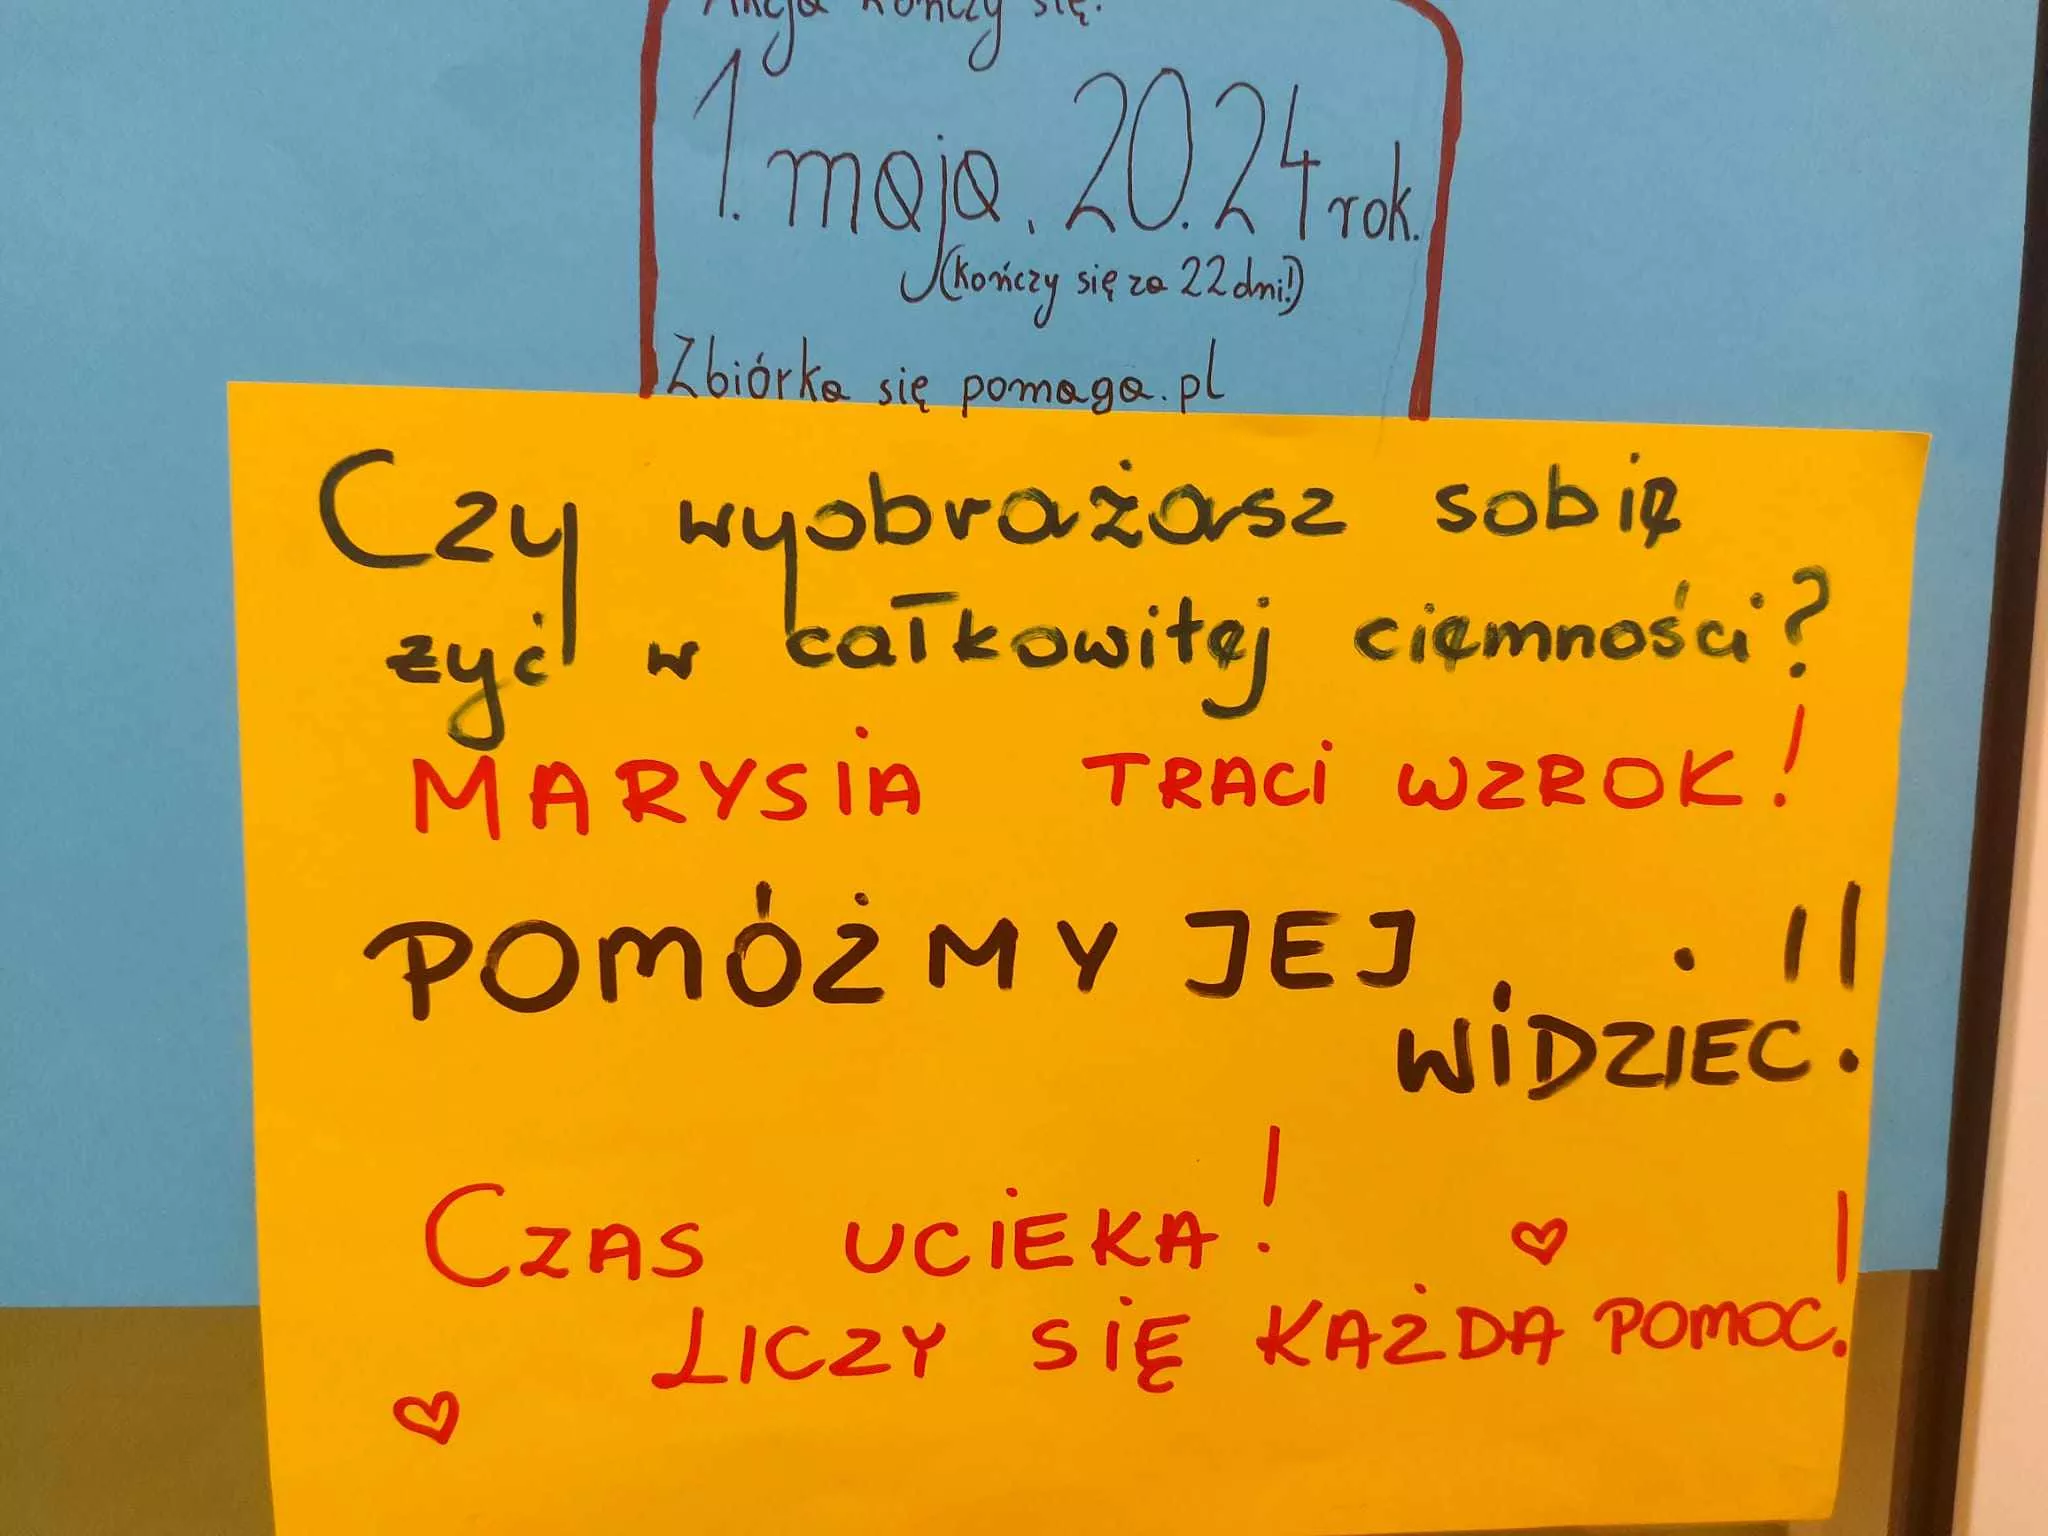 Akcja kończy się:
1. maja. 20.24 rok.
(kończy się za 22 dni!)
Zbiórka się pomaga.pl
Czy wyobrażasz sobię
żyć w całkowitęj cięmności?
MARYSIA TRACI WZROK!
POMÓŻMY JEJ
WIDZIEC!!
CZAS UCIEKA!
LICZY SIĘ KAŻDA POMOC!